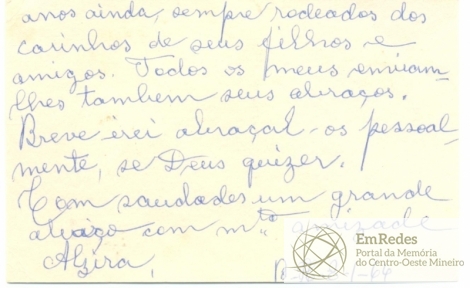 anos ainda, sempre rodeados dos
carinhos de seus filhos e
amigos. Todos os meus enviam-
lhes tambem seus abraços.
Breve irei abraçal-os pessoal
mente, se Deus quizer.
Com saudades um grande
abraço com mta amizade
Alzira,
EmRedes
Portal da Memória
do Centro-Oeste Mineiro